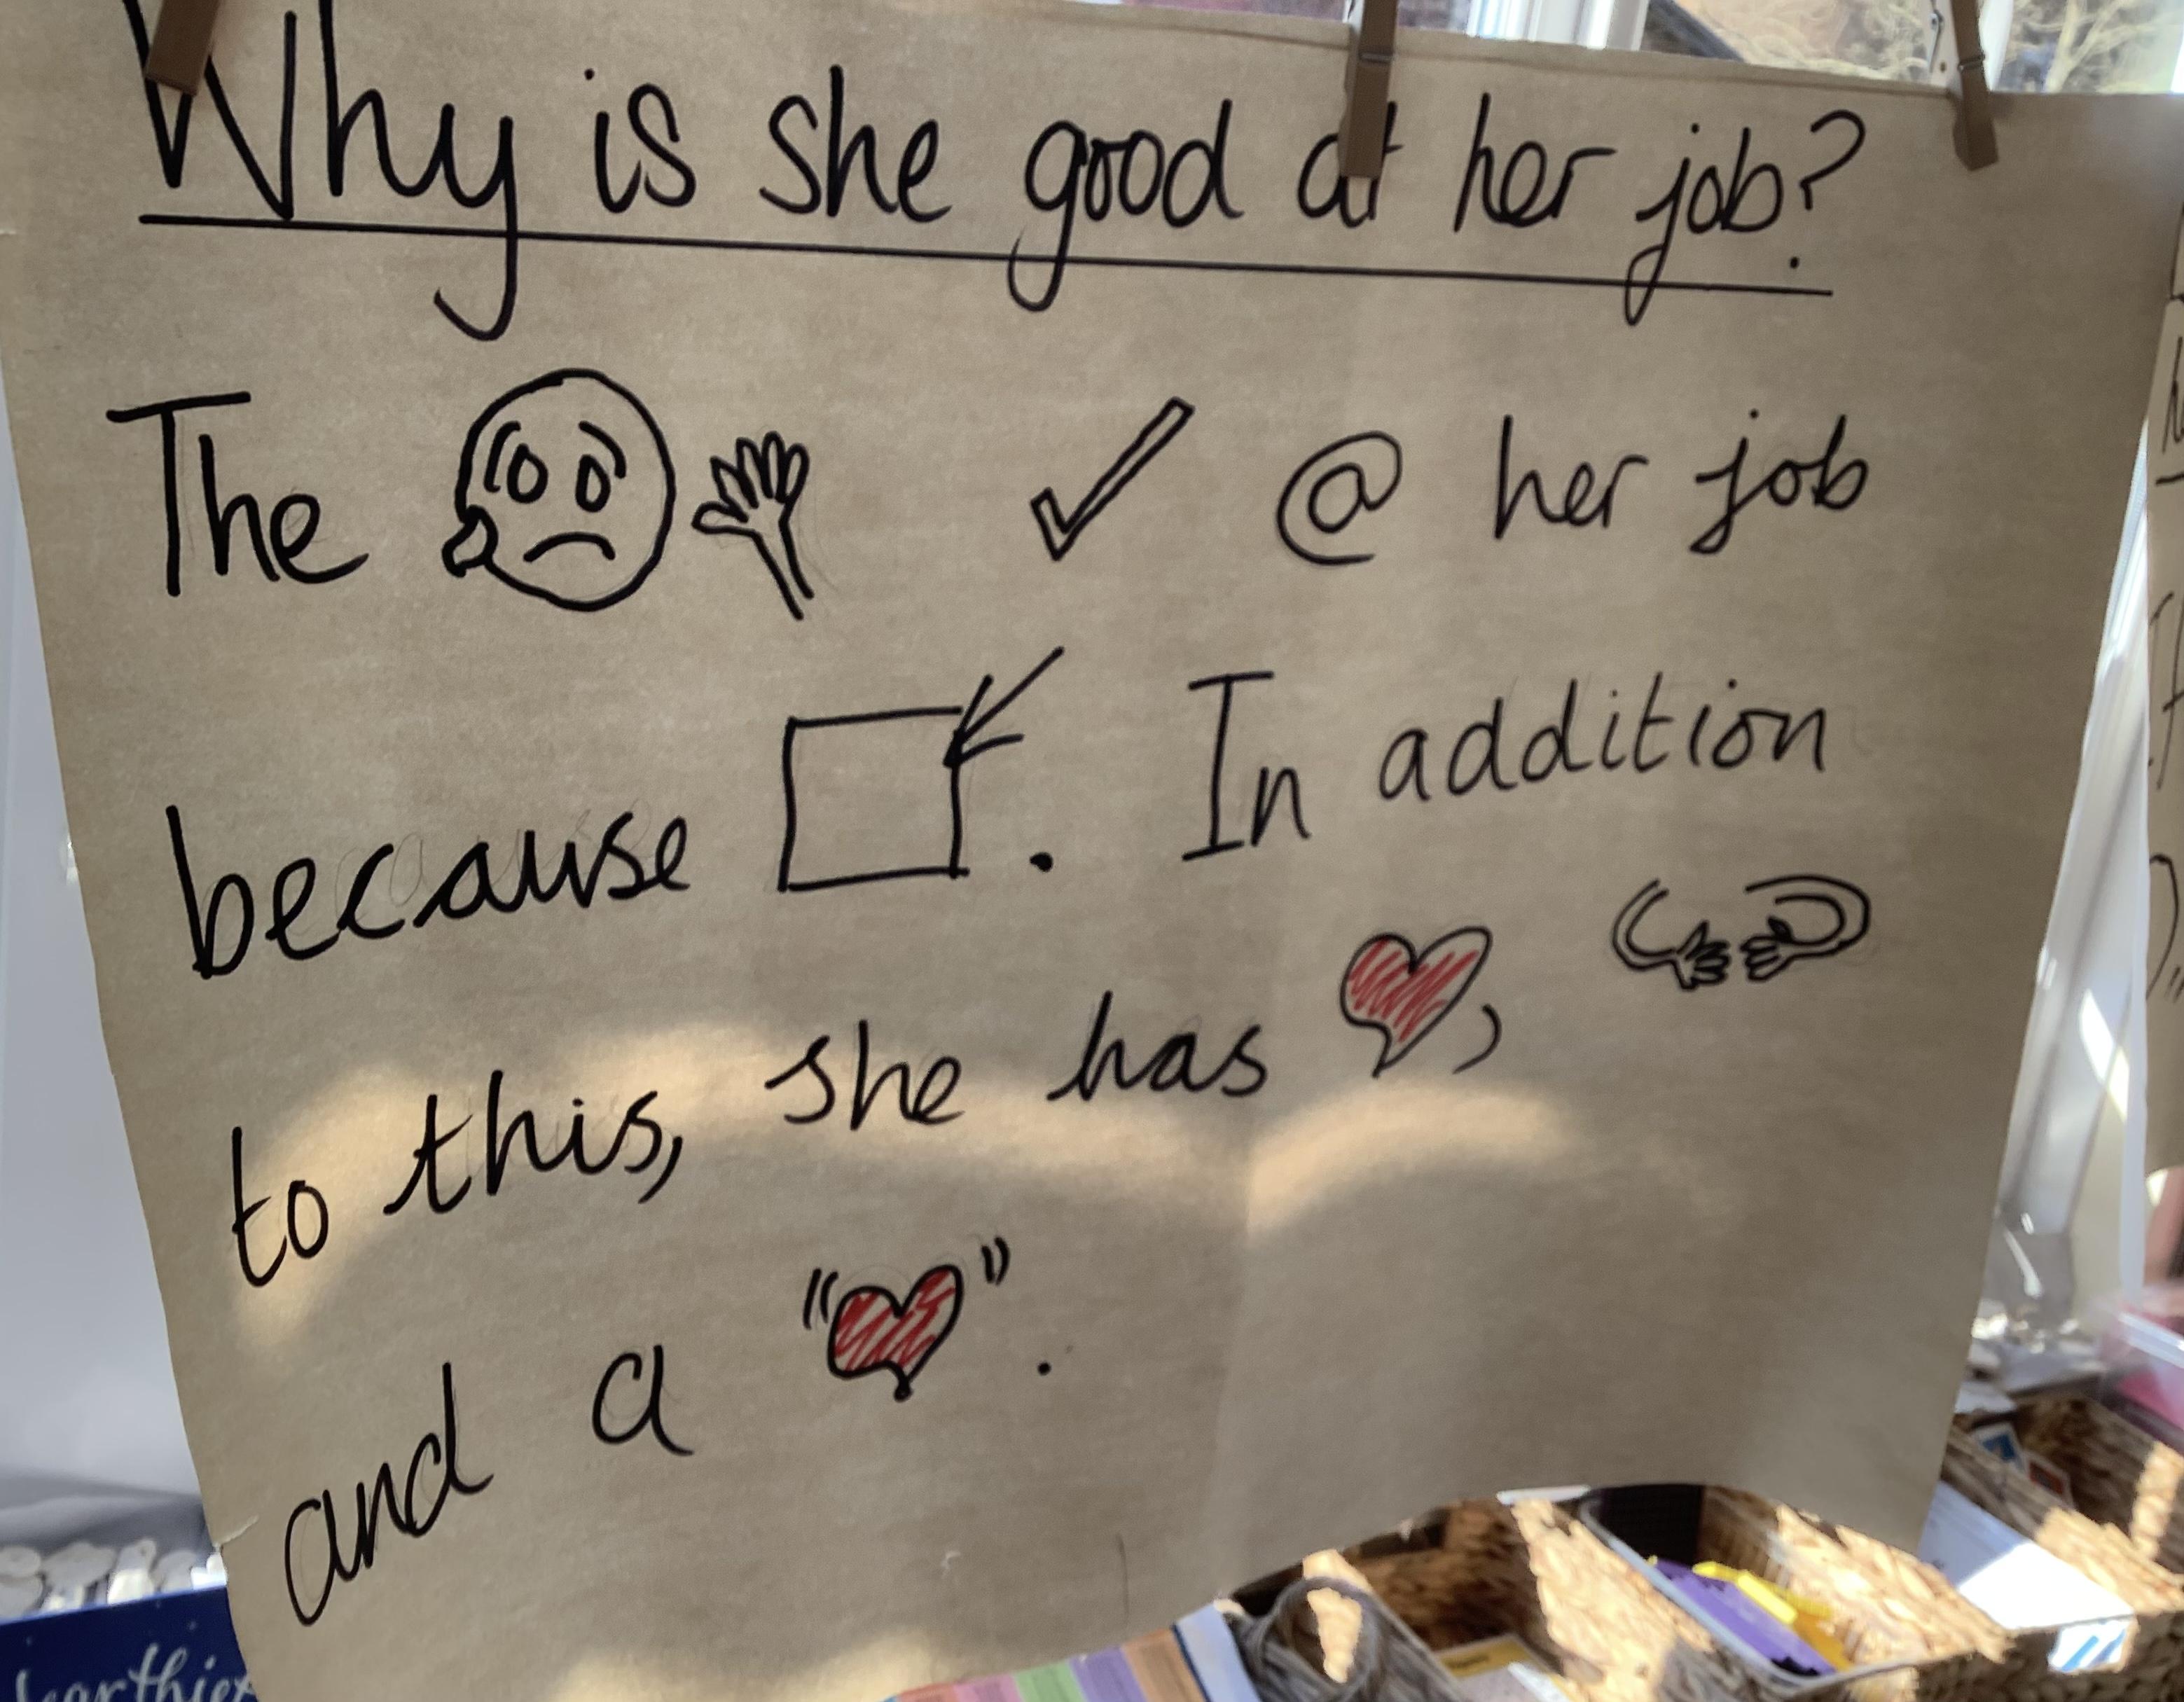 Why is she good at her job?
The @ her job
because . In addition
to this, she has ,
and a " ".